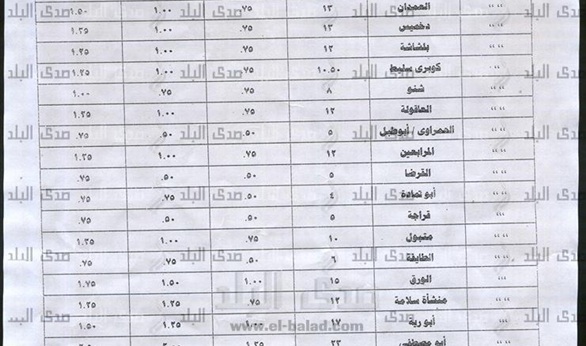 " " العمدان ١٣ .٧٥ ١.٠٠ ١.٥٠
" " دخميس ١٣ .٧٥ ١.٠٠ ١.٢٥
" " بلشاشة ١٢ .٧٥ ١.٠٠ ١.٢٥
" " كوبرى سليط ١٠.٥٠ .٧٥ ١.٠٠ ١.٢٥
" " شنو ٨ .٧٥ .٧٥ ١.٠٠
" " العاقولة ١٢ .٧٥ ١.٠٠ ١.٢٥
" " الحمراوى / أبوطبل ٥ .٥٠ .٥٠ .٧٥
" " المرابعين ١٢ .٧٥ ١.٠٠ ١.٢٥
" " القرضا ٥ .٥٠ .٥٠ .٧٥
" " أبو تمادة ٤ .٥٠ .٧٥ .٧٥
" " قراجة ٥ .٥٠ .٥٠ .٧٥
" " متبول ١٠ .٧٥ ١.٠٠ ١.٢٥
" " الطايفة ٦ .٥٠ .٧٥ .٧٥
" " الورق ١٥ ١.٠٠ ١.٥٠ ١.٧٥
" " منشأة سلامة ١٢ .٧٥ ١.٢٥ ١.٢٥
" " أبو ريه ١٧ ١.٠٠ ١.٢٥ ١.٥٠
" " أبو مصطفى ٢٣ ١.٢٥
صدى البلد
www.el-balad.com